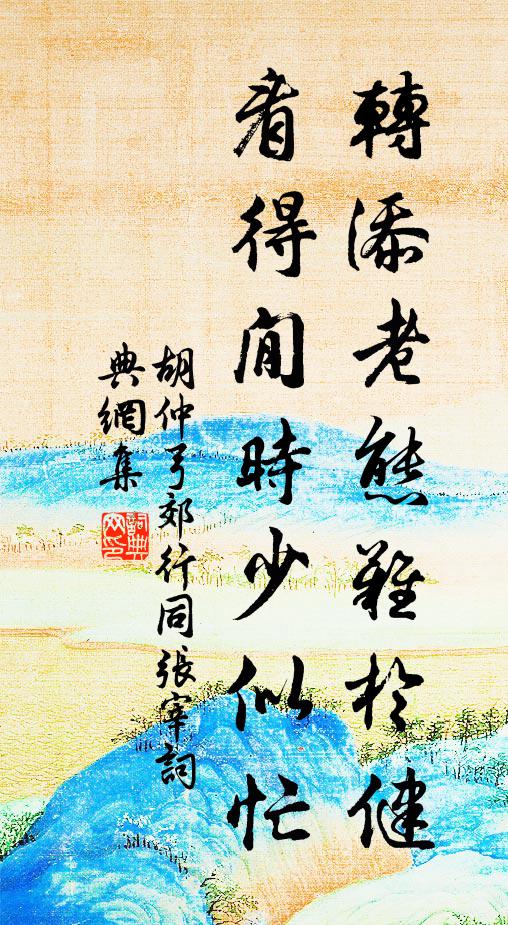 轉添老態難於健
看得閒時少似忙
胡仲弓郊行同張宰詞
典網集
詞典網印